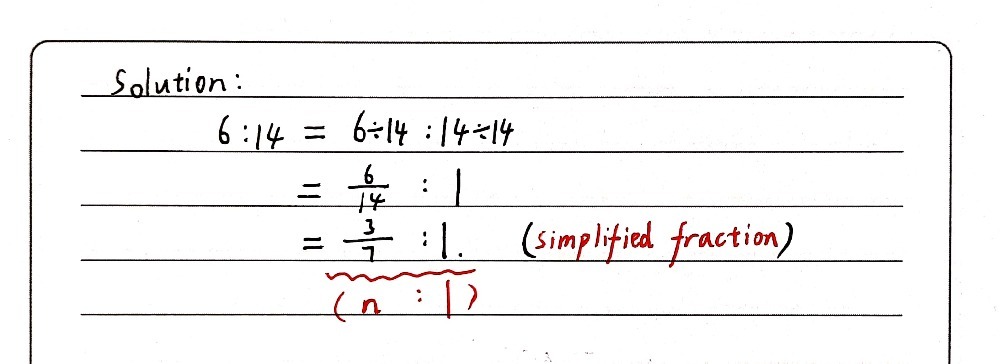 Solution:
6 : 14 = 6÷14 : 14÷14
= 6/14 : 1
= 3/7 : 1. (simplified fraction)
(n : 1)